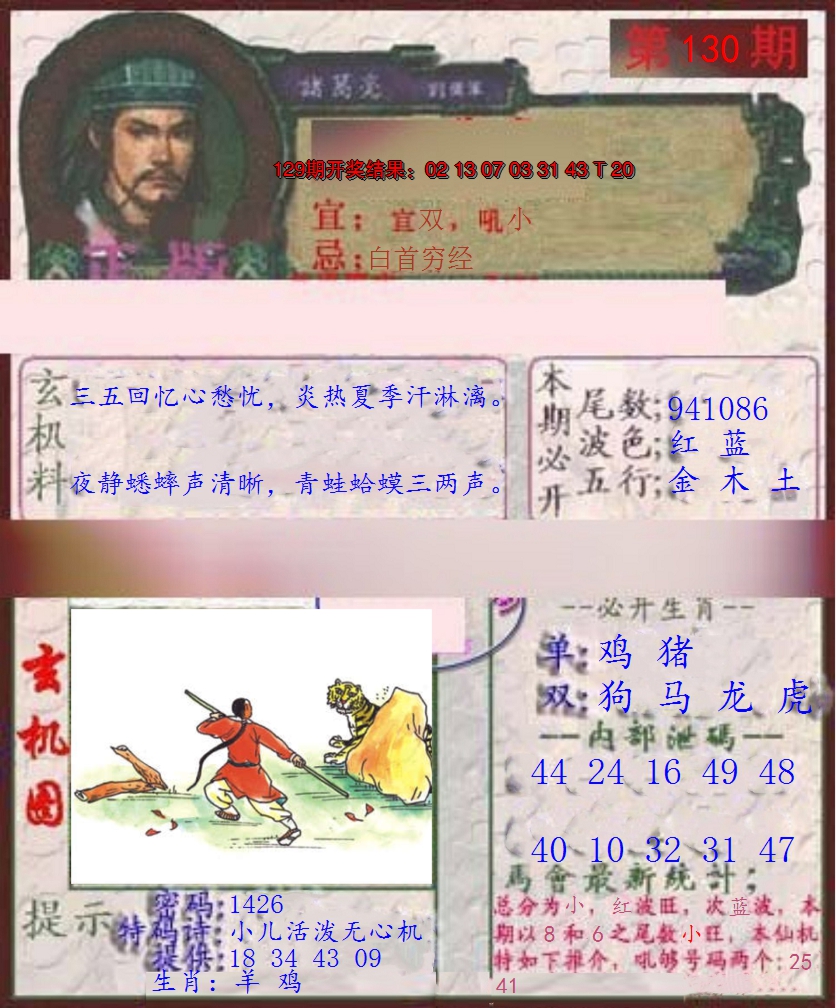 第130期
諸葛亮
129期开奖结果：02 13 07 03 31 43 T 20
宜；宜双，吼小
忌；白首穷经
正版
玄机料
三五回忆心愁忧，炎热夏季汗淋漓。
夜静蟋蟀声清晰，青蛙蛤蟆三两声。
本期必开
尾数；941086
波色；红 蓝
五行；金 木 土
玄机图
--必开生肖--
单：鸡 猪
双：狗 马 龙 虎
--内部泄碼--
44 24 16 49 48
40 10 32 31 47
馬會最新統計；
总分为小，红波旺，次蓝波，本
期以8和6之尾数小旺，本仙机
特如下推介，吼够号码两个：25
41
提示
密码：1426
特码诗：小儿活泼无心机
提供：18 34 43 09
生肖：羊 鸡